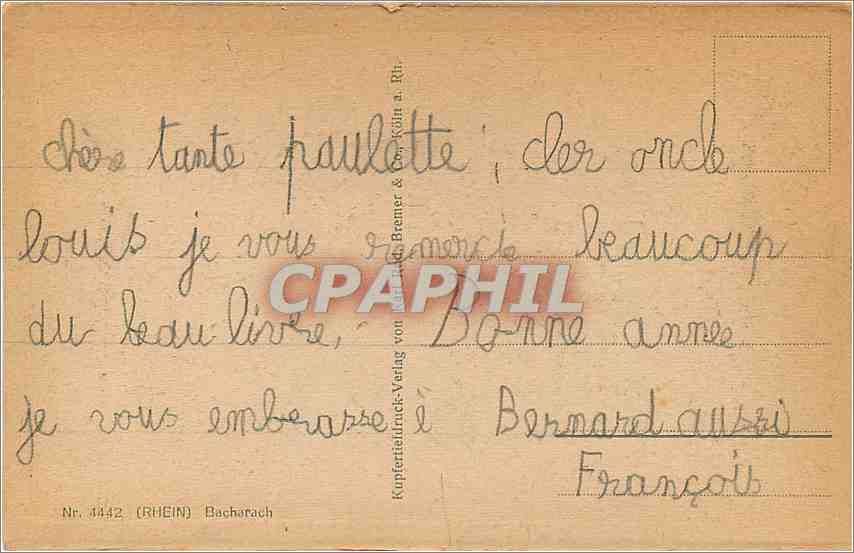 chère tante paulette, cher oncle
louis je vous remercie beaucoup
du beau livre. Bonne année
je vous embrasse è Bernard aussi
François
Nr. 4442 (RHEIN) Bacharach
Kupfertiefdruck-Verlag von Karl Rud. Bremer & Co., Köln a. Rh.
CPAPHIL